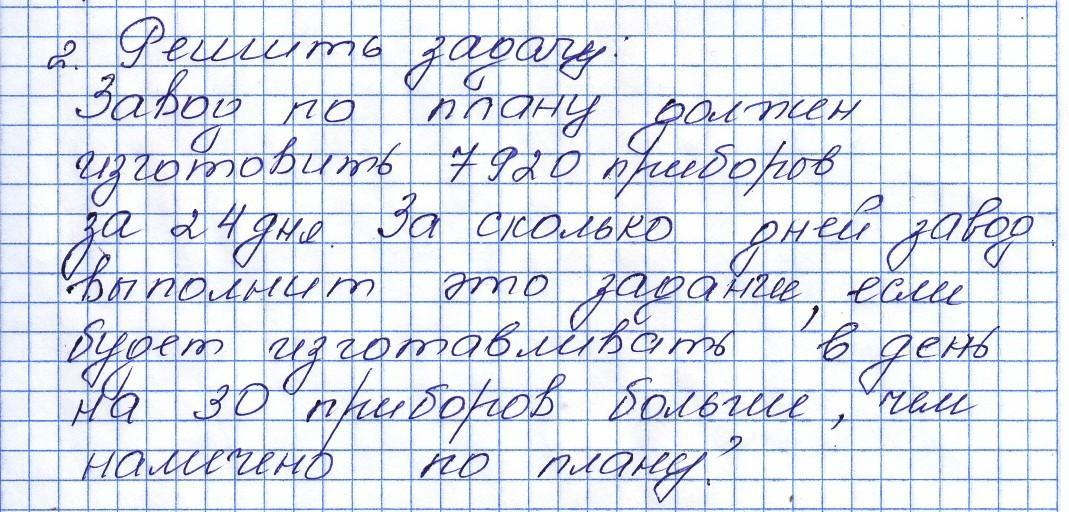 2. Решить задачу:
Завод по плану должен
изготовить 7920 приборов
за 24 дня. За сколько дней завод
выполнит это задание, если
будет изготавливать в день
на 30 приборов больше, чем
намечено по плану?